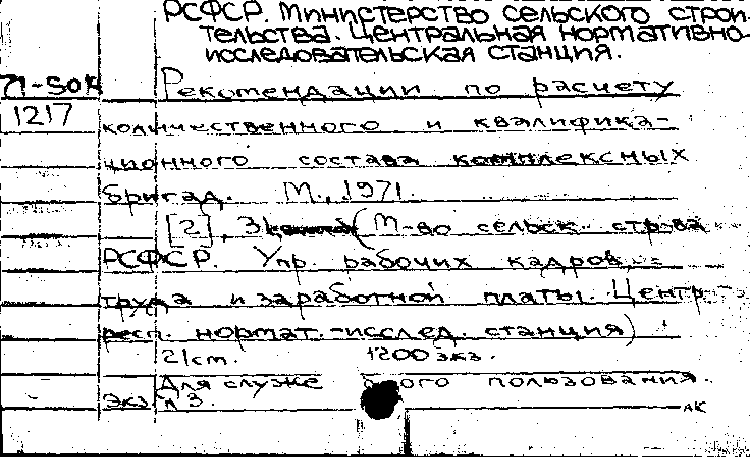 РСФСР. Министерство сельского строи-
тельства. Центральная нормативно-
исследовательская станция.
71-50К
Рекомендации по расчету
1217
количественного и квалифика-
ционного состава комплексных
бригад. М., 1971.
[2], 31 с. (М-во сельск. стр-ва
РСФСР. Упр. рабочих кадров,
труда и заработной платы. Центр.
респ. нормат.-исслед. станция)
21 см. 1200 экз.
Для служебного пользования.
Экз. № 3.
АК